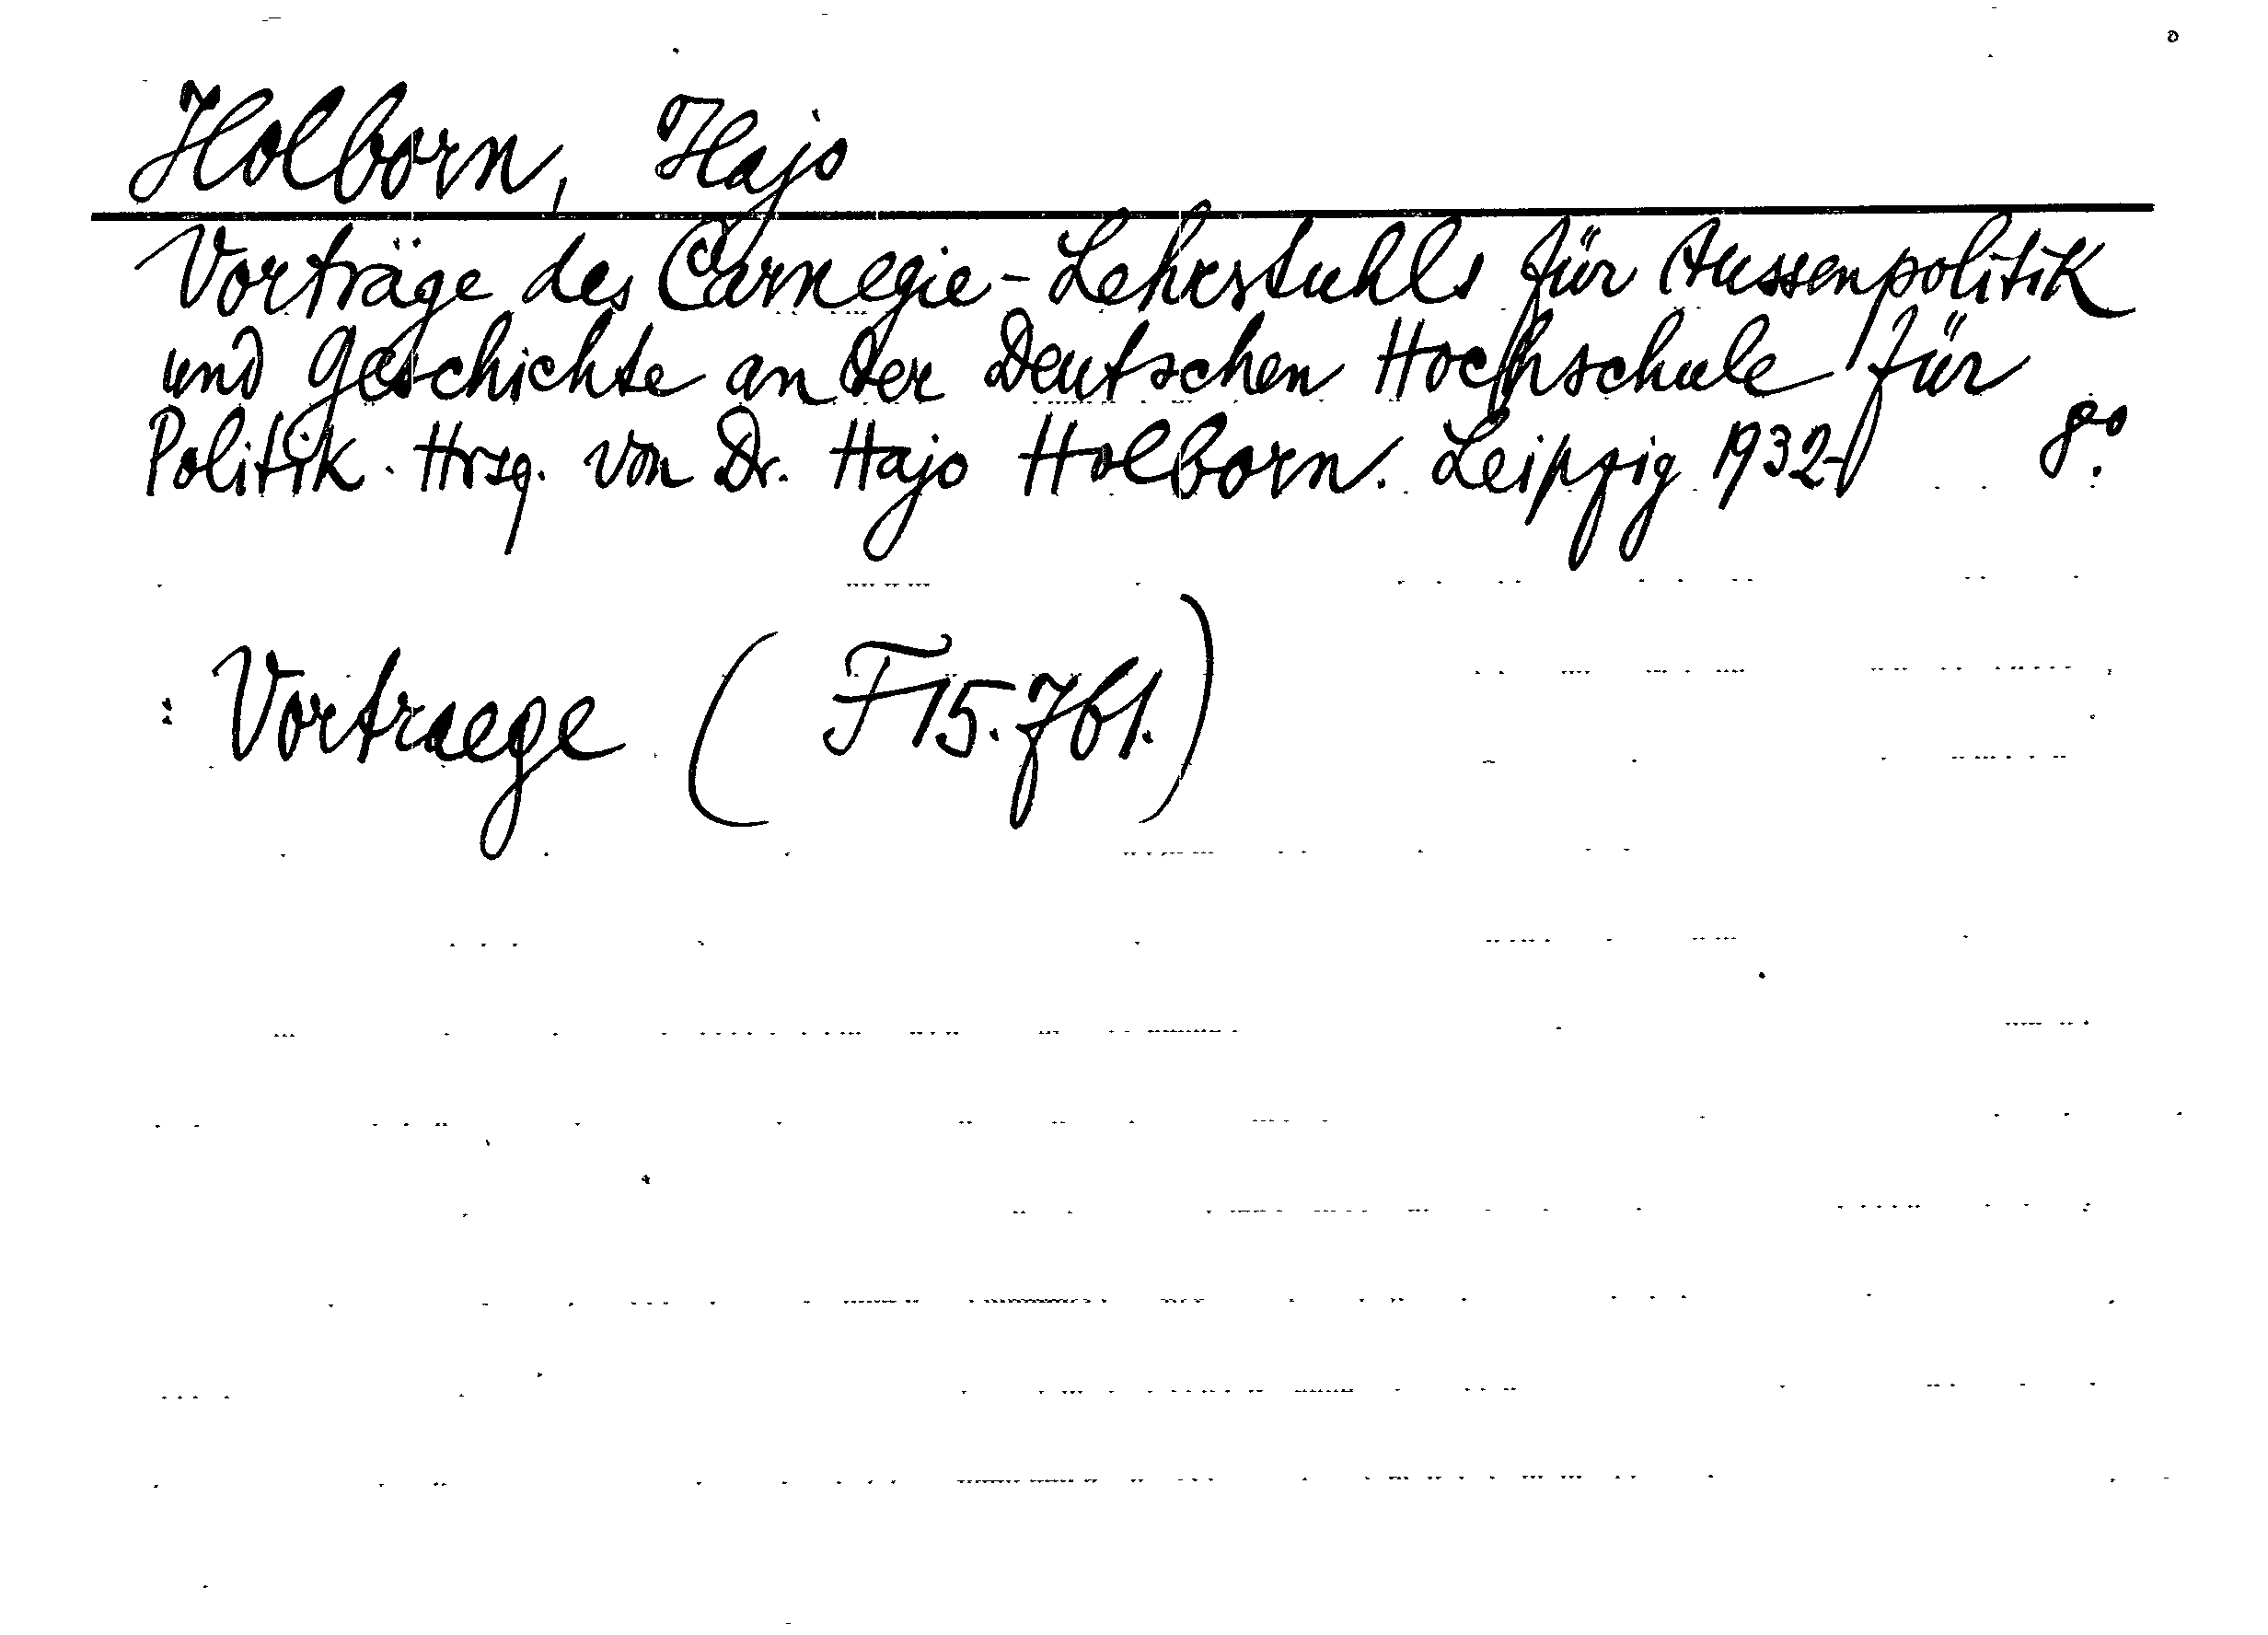 Holborn, Hajo
Vorträge des Carnegie-Lehrstuhls für Aussenpolitik
und Geschichte an der Deutschen Hochschule für
Politik. Hrsg. von Dr. Hajo Holborn. Leipzig 1932- 8°.
: Vortraege ( F 15. 761. )